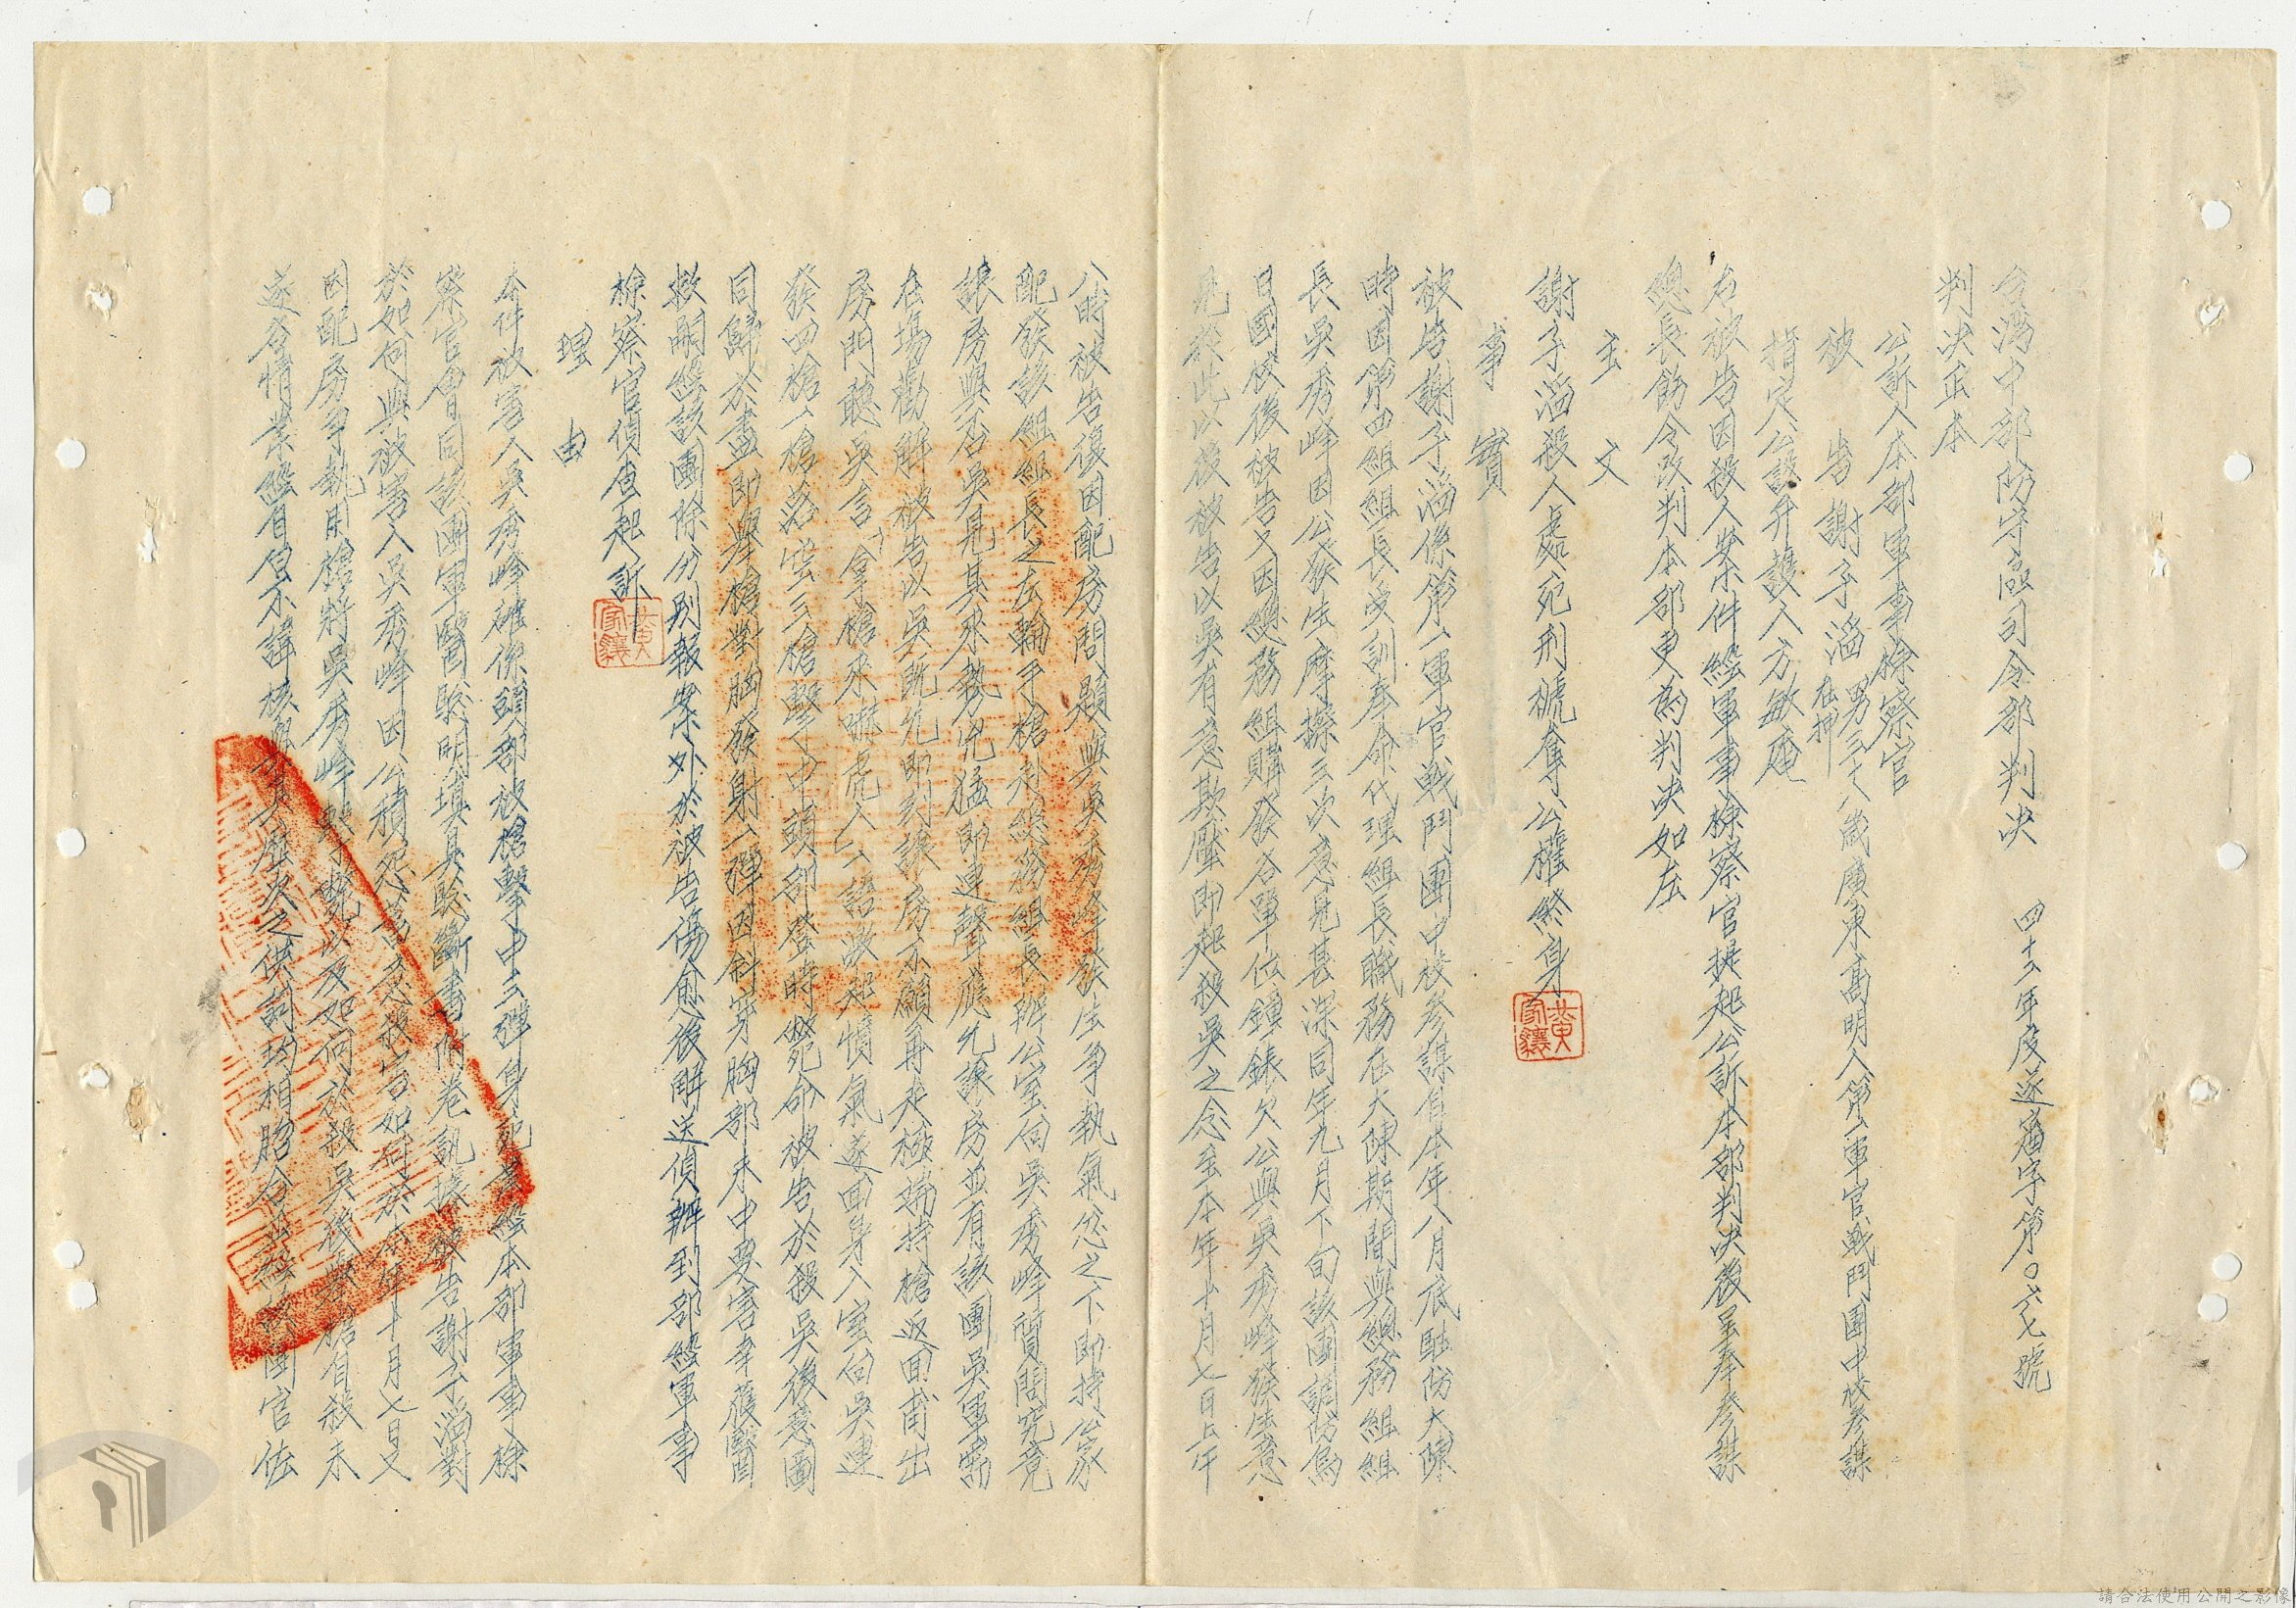 台灣中部防守區司令部判決 四十二年度逐審字第〇六七號
判決正本
公訴人本部軍事檢察官
被告 謝子滔 男三八歲廣東高明人第一軍官戰鬥團中校參謀
在押
指定公設弁護人方敏庵
右被告因殺人案件經軍事檢察官提起公訴本部判決後呈奉參謀
總長飭令改判本部更為判決如左
主文
謝子滔殺人處死刑褫奪公權終身
事實
被告謝子滔係第一軍官戰鬥團中校參謀自本年八月底駐防大陳
時因第四組組長受訓奉命代理組長職務在大陳期間與總務組組
長吳秀峰因公發生摩擦三次意見甚深同年九月下旬該團調防烏
日國校後被告又因總務組購發各單位鐘錶欠公與吳秀峰發生意
見從此以後被告以吳有意欺壓即起殺吳之念至本年十月七日上午
八時被告復因配房問題與吳秀峰發生爭執氣忿之下即持公家
配發該組組長之左輪手槍赴總務組長辦公室向吳秀峰質問究竟
讓房與否吳見其來勢兇猛即連聲應允讓房並有該團吳軍需
在場勸解被告以吳既允即刻讓房不願再走極端持槍返回甫出
房門聽吳言「拿槍來嚇唬人」一語激起憤氣遂回身入室向吳連
發四槍一槍落空三槍擊中頭部登時斃命被告於殺吳後意圖
同歸於盡即舉槍對胸發射一彈因斜穿胸部未中要害幸獲醫
救嗣經該團除分別報案外於被告傷愈後解送偵辦到部經軍事
檢察官偵查起訴
黃家鑲
理由
本件被害人吳秀峰確係頭部被槍擊中三彈身死業經本部軍事檢
察官會同該團軍醫驗明填具驗斷書附卷訊據被告謝子滔對
於如何與被害人吳秀峰因公積怨蓄意殺害如何於本年十月七日又
因配房爭執用槍將吳秀峰擊斃以及如何於殺吳後舉槍自殺未
遂各情業經自白不諱核與其歷次之供詞均相脗合並經該團官佐
黃家鑲
請合法使用公開之影像